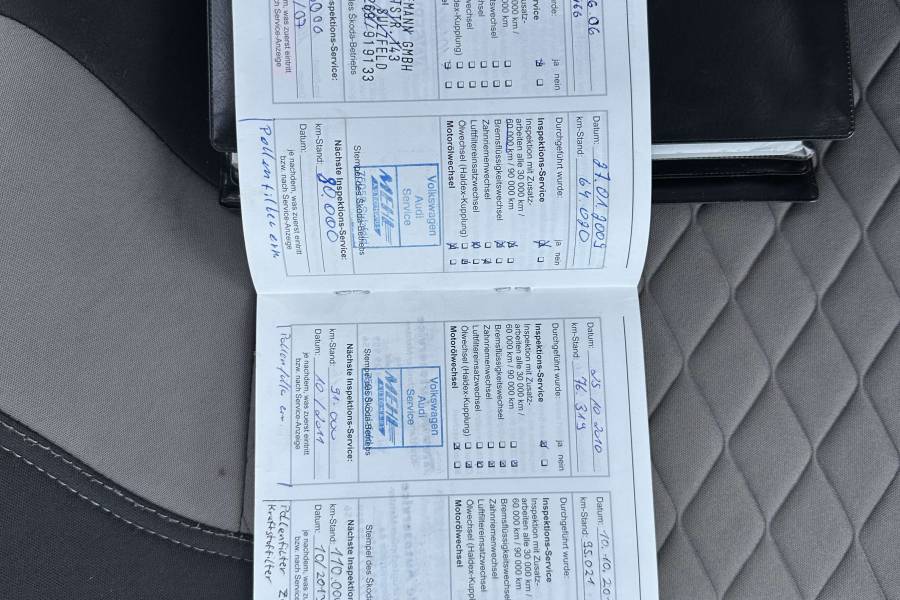 durchgeführt wurde:
ja nein
Service
Zusatz-
00 km /
00 km
wechsel
chsel
wechsel
dex-Kupplung)
sel
MANN GMBH
TSTR. 143
SULZFELD
269/919133
des Skoda-Betriebs
spektions-Service:
m, was zuerst eintritt
h Service-Anzeige
Datum: 27.01.2009
km-Stand: 64.020
Durchgeführt wurde: ja nein
Inspektions-Service
Inspektion mit Zusatz-
arbeiten alle 30 000 km /
60 000 km / 90 000 km
Bremsflüssigkeitswechsel
Zahnriemenwechsel
Luftfiltereinsatzwechsel
Ölwechsel (Haldex-Kupplung)
Motorölwechsel
Volkswagen
Audi
Service
MEHL
Stempel des Skoda-Betriebs
Nächste Inspektions-Service:
km-Stand: 80,000
Datum:
je nachdem, was zuerst eintritt
bzw. nach Service-Anzeige
Pollenfilter ern
Datum: 25.10.2010
km-Stand: 76.319
Durchgeführt wurde: ja nein
Inspektions-Service
Inspektion mit Zusatz-
arbeiten alle 30 000 km /
60 000 km / 90 000 km
Bremsflüssigkeitswechsel
Zahnriemenwechsel
Luftfiltereinsatzwechsel
Ölwechsel (Haldex-Kupplung)
Motorölwechsel
Volkswagen
Audi
Service
MEHL
Stempel des Skoda-Betriebs
Nächste Inspektions-Service:
km-Stand: 91.000
Datum: 10/2011
je nachdem, was zuerst eintritt
bzw. nach Service-Anzeige
Datum: 10.10.20
km-Stand: 95.021
Durchgeführt wurde:
Inspektions-Service
Inspektion mit Zusatz-
arbeiten alle 30 000 km /
60 000 km / 90 000 km
Bremsflüssigkeitswechsel
Zahnriemenwechsel
Luftfiltereinsatzwechsel
Ölwechsel (Haldex-Kupplung)
Motorölwechsel
Stempel des Skoda
Nächste Inspektion
km-Stand: 110.000
Datum: 10/201
je nachdem, was zu
bzw. nach Serv
Pollenfilter
Kraftstofffilter